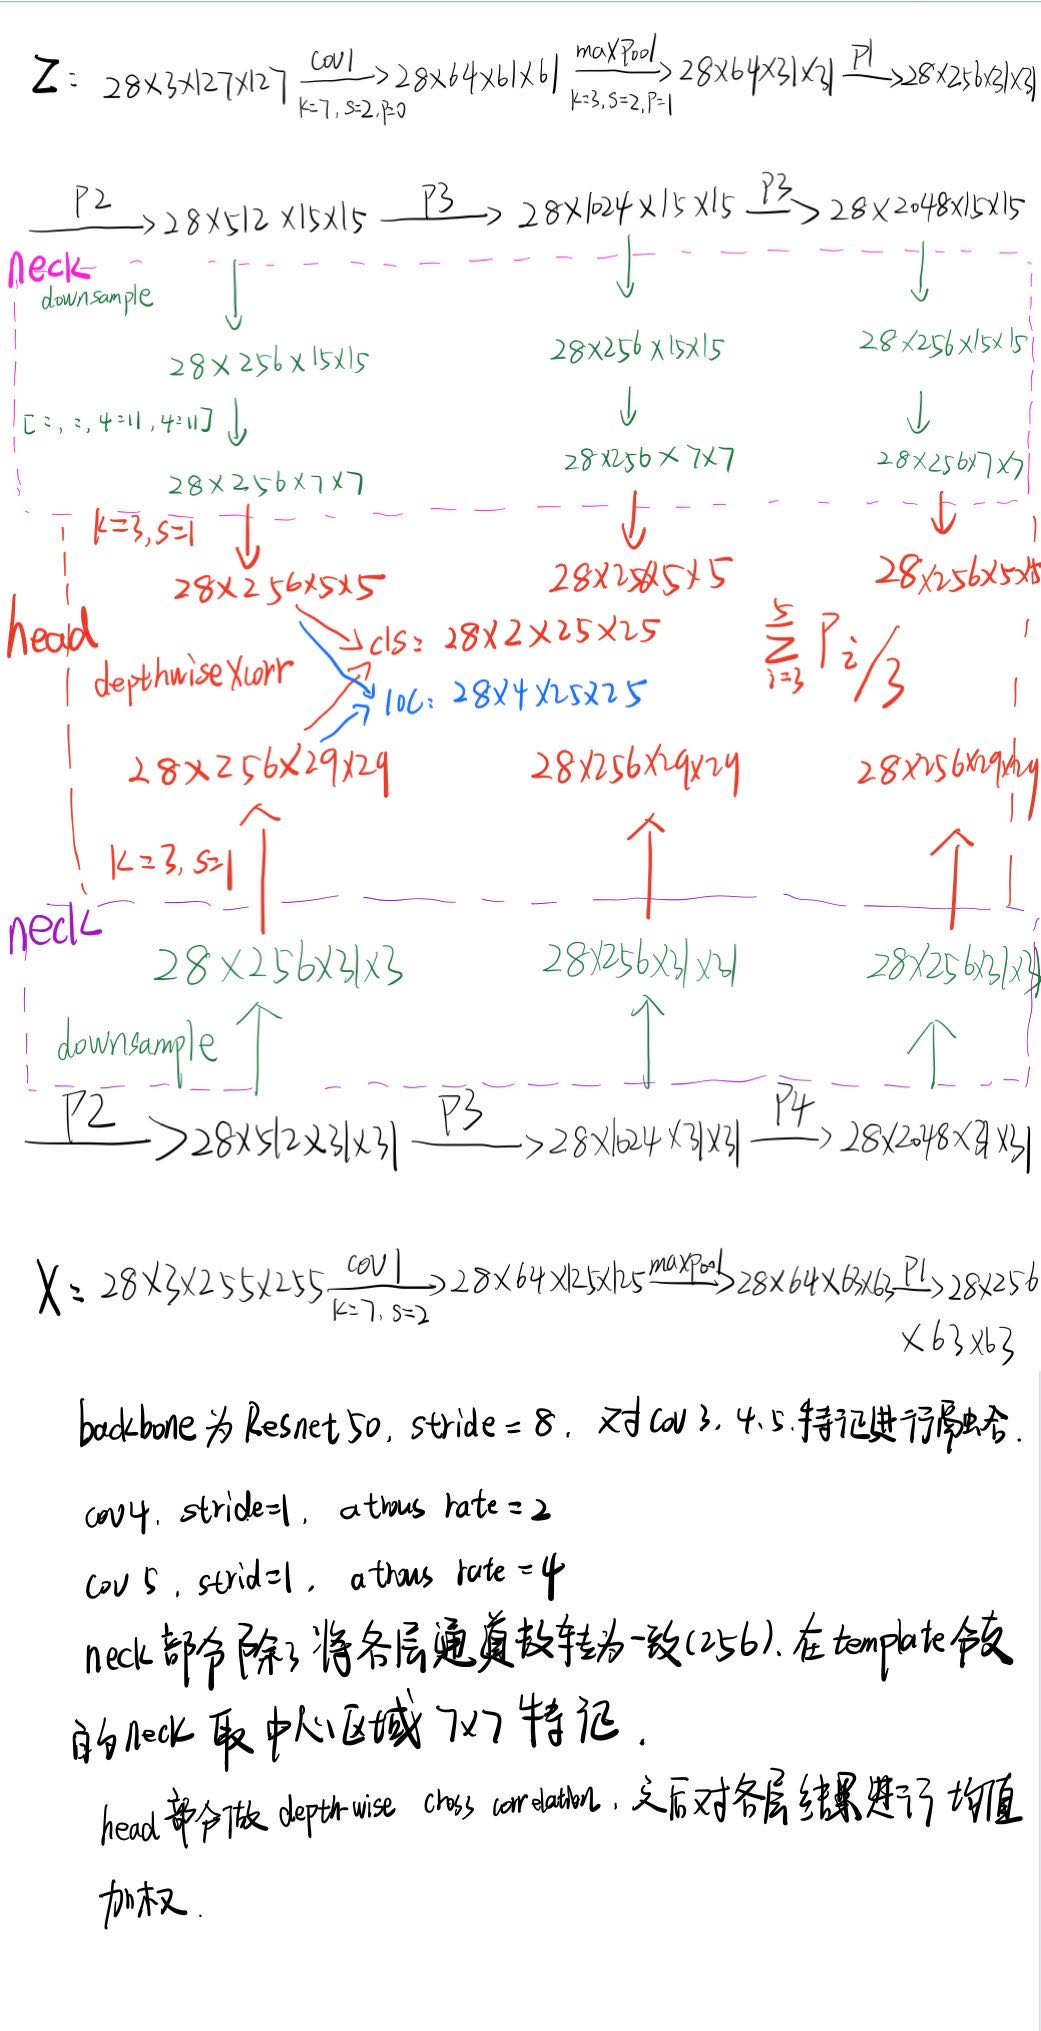 Z: 28×3×127×127 cov1 k=7, s=2, p=0 → 28×64×61×61 maxpool k=3, s=2, p=1 → 28×64×31×31 P1 → 28×256×31×31
P2 → 28×512×15×15 P3 → 28×1024×15×15 P3 → 28×2048×15×15
neck
downsample
28×256×15×15 28×256×15×15 28×256×15×15
[:, :, 4:11, 4:11]
28×256×7×7 28×256×7×7 28×256×7×7
k=3, s=1
28×256×5×5 28×256×5×5 28×256×5×5
head
cls: 28×2×25×25
depthwise Xcorr
loc: 28×4×25×25
5 Σ i=3 Pi/3
28×256×29×29 28×256×29×29 28×256×29×29
k=3, s=1
neck
28×256×31×3 28×256×31×31 28×256×31×31
downsample
P2 → 28×512×31×31 P3 → 28×1024×31×31 P4 → 28×2048×31×31
X: 28×3×255×255 cov1 k=7, s=2 → 28×64×125×125 maxpool → 28×64×63×63 P1 → 28×256
×63×63
backbone为Resnet50, stride=8, 对cov3.4.5.特征进行融合.
cov4, stride=1, atrous rate=2
cov5, strid=1, atrous rate=4
neck部分除了将各层通道数转为一致(256).在template分支
的neck取中心区域7×7特征.
head部分做depth-wise cross correlation, 之后对各层结果进行均值
加权.